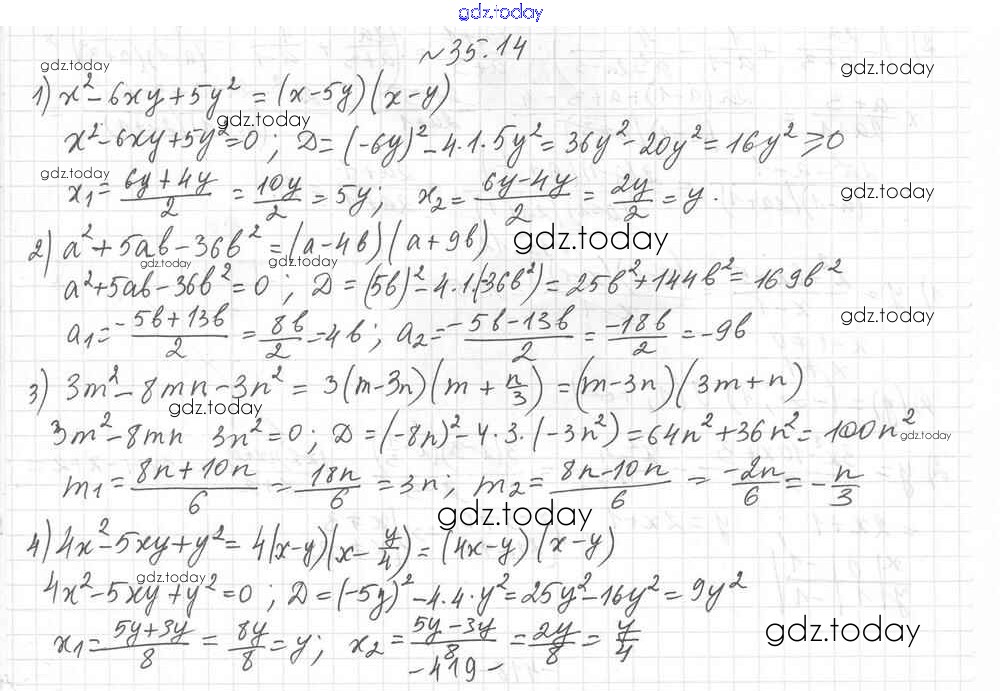 gdz.today
№35.14
gdz.today
gdz.today
1) x² - 6xy + 5y² = (x-5y)(x-y)
gdz.today
x² - 6xy + 5y² = 0 ; D = (-6y)² - 4·1·5y² = 36y² - 20y² = 16y² ≥ 0
gdz.today
gdz.today
x₁ = (6y+4y)/2 = 10y/2 = 5y; x₂ = (6y-4y)/2 = 2y/2 = y.
2) a² + 5ab - 36b² = (a-4b)(a+9b)
gdz.today
gdz.today
gdz.today
a² + 5ab - 36b² = 0 ; D = (5b)² - 4·1·(-36b²) = 25b² + 144b² = 169b²
gdz.today
a₁ = (-5b+13b)/2 = 8b/2 = 4b ; a₂ = (-5b-13b)/2 = -18b/2 = -9b
3) 3m² - 8mn - 3n² = 3(m-3n)(m + n/3) = (m-3n)(3m+n)
gdz.today
3m² - 8mn 3n² = 0 ; D = (-8n)² - 4·3·(-3n²) = 64n² + 36n² = 100n²
gdz.today
m₁ = (8n+10n)/6 = 18n/6 = 3n; m₂ = (8n-10n)/6 = -2n/6 = -n/3
gdz.today
4) 4x² - 5xy + y² = 4(x-y)(x - y/4) = (4x-y)(x-y)
gdz.today
4x² - 5xy + y² = 0 ; D = (-5y)² - 4·4·y² = 25y² - 16y² = 9y²
x₁ = (5y+3y)/8 = 8y/8 = y; x₂ = (5y-3y)/8 = 2y/8 = y/4
gdz.today
-419-